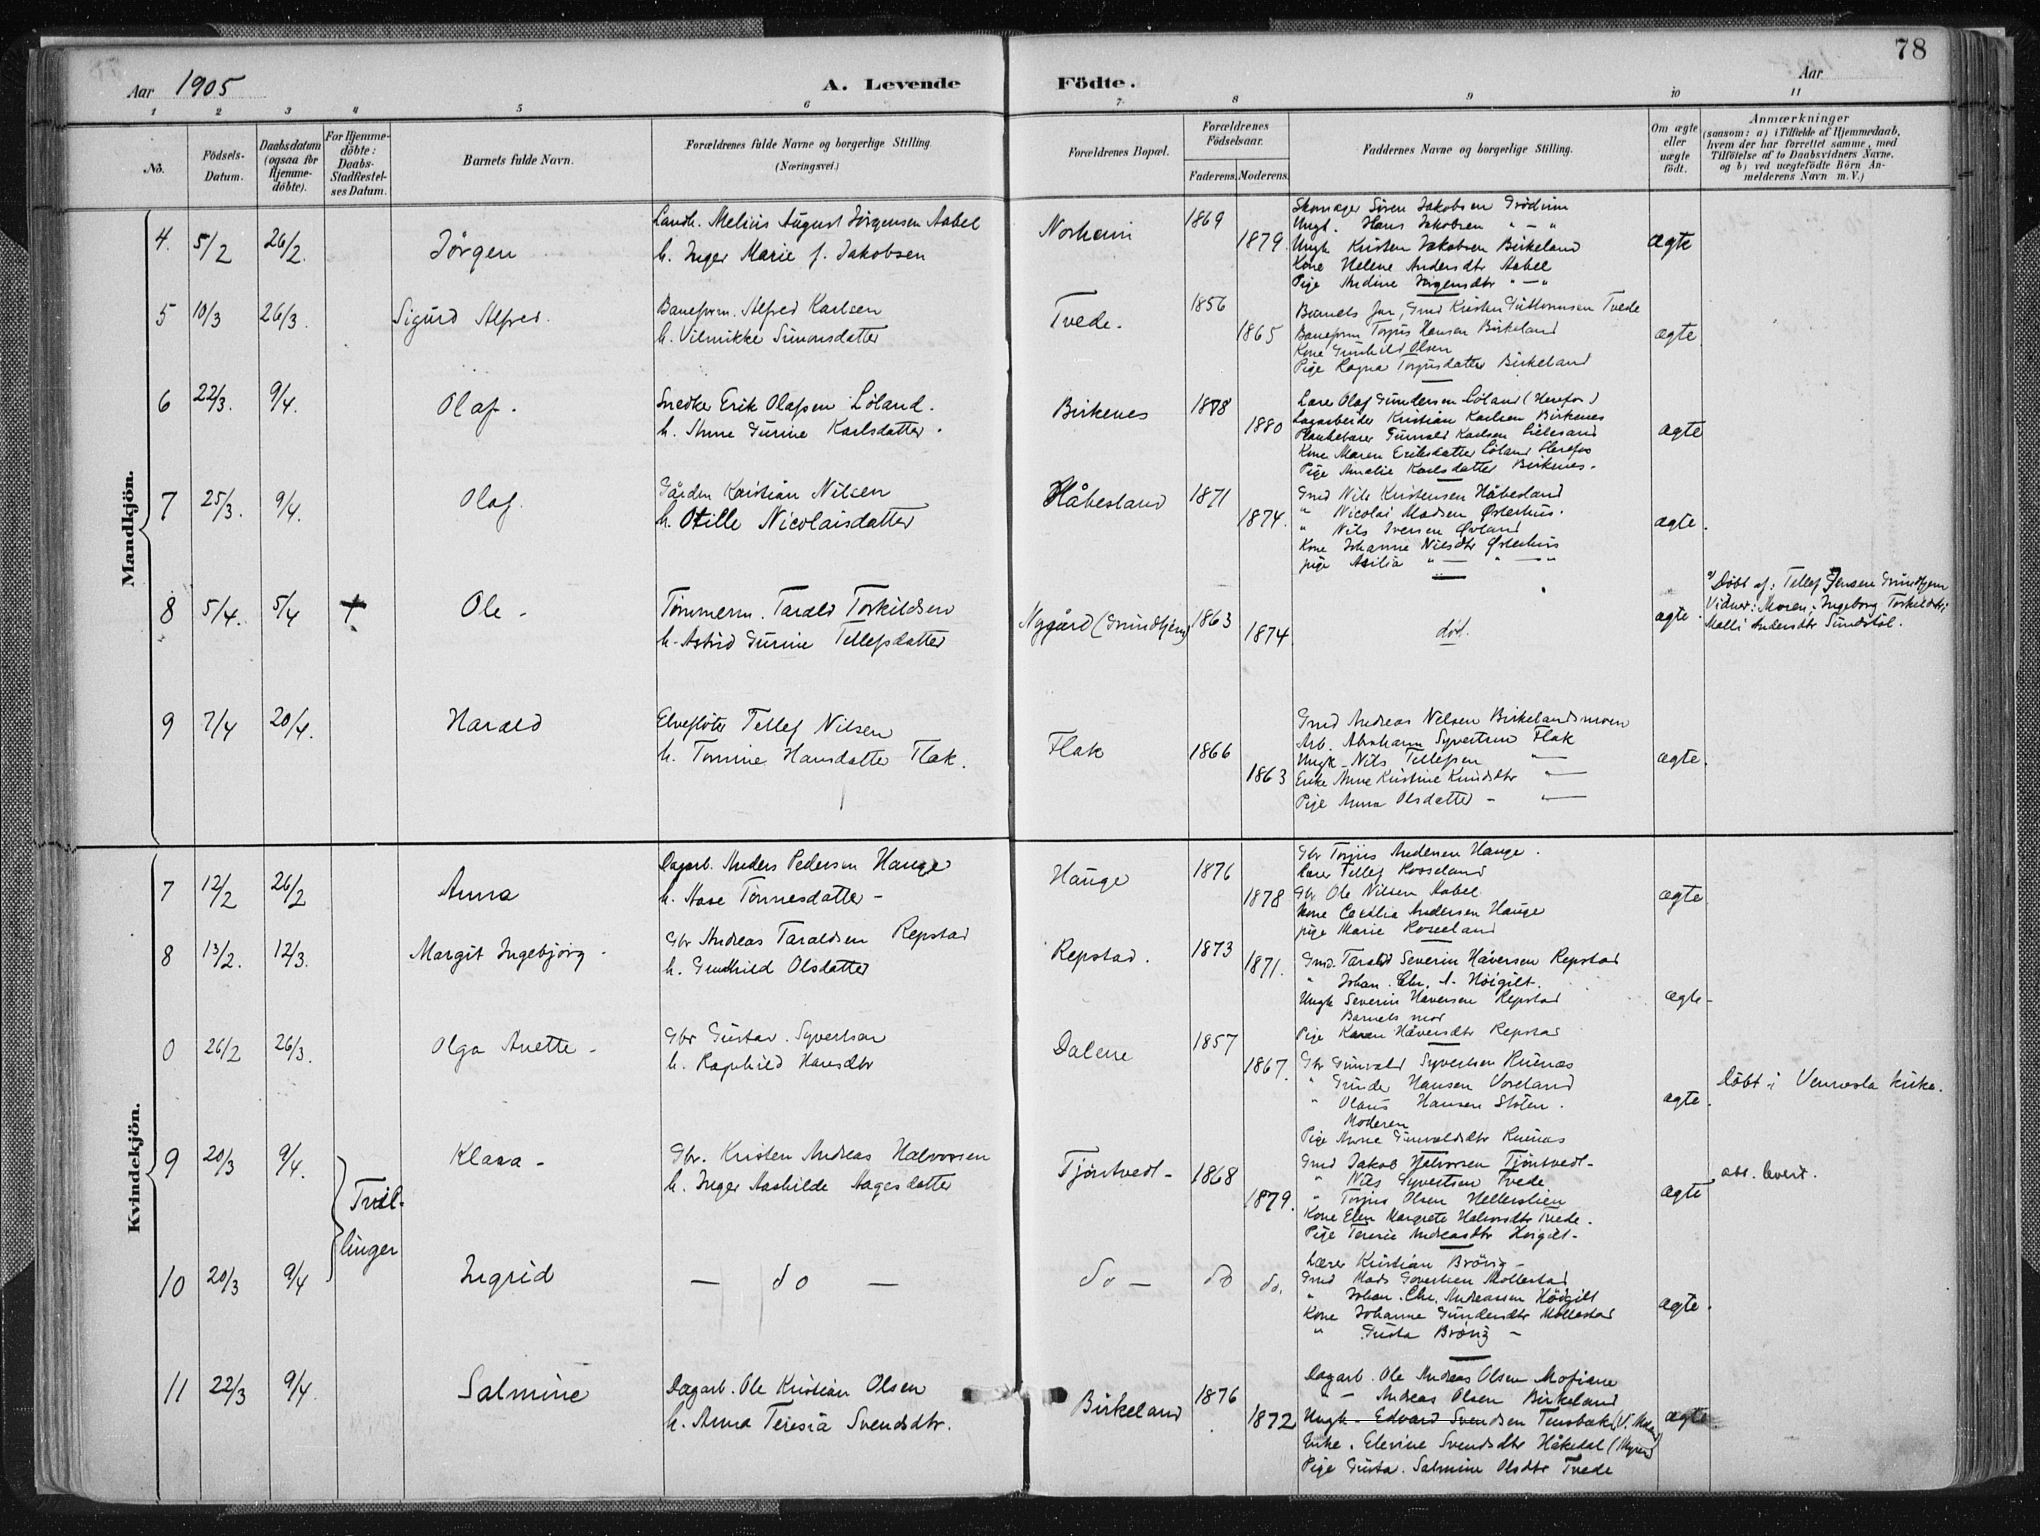 78
Aar 1905 A. Levende Födte. Aar
1 2 3 4 5 6 7 8 9 10 11
No.
Födsels-Datum.
Daabsdatum (ogsaa for Hjemmedöbte).
For Hjemmedöbte: Daabs-Stadfestelses Datum.
Barnets fulde Navn.
Forældrenes fulde Navne og borgerlige Stilling. (Næringsvei.)
Forældrenes Bopæl.
Forældrenes Födselsaar.
Faderens. Moderens.
Faddernes Navne og borgerlige Stilling.
Om ægte eller uægte födt.
Anmærkninger
(saasom: a) i Tilfælde af Hjemmedaab,
hvem der har forrettet samme, med
Tilföielse af to Daabsvidners Navne,
og b) ved uægtefödte Börn An-
melderens Navn m. V.)
Mandkjön.
4. 5/2 26/2. Jörgen
Landb. Melius August Jörgensen Aabel
h. Inger Marie f. Jakobsen
1869
1879.
Skomager Sören Jakobsen
Ungk. Hans Jakobsen " — "
Ungk Kristen Jakobsen Birkeland
Kone Helene Andersdtr Aabel
Pige Andine Jörgensdtr " — "
ægte
5 10/3 26/3. Sigurd Alfred.
Baneform. Alfred Karlsen
h. Vilmikke Simonsdatter
Tvede. 1856
1865
Barnets far, Gmd Kristen Guttormsen Tvede
Baneform Torjus Hansen Birkeland
Kone Gunhild Olsen
Pige Ragna Torjusdatter Birkeland
ægte
6 22/3. 9/4. Olaf.
Snedker Erik Olafsen Löland.
h. Anne Gurine Karlsdatter.
Birkenes 1878
1880
Lærer Olaf Gundersen Löland (Herefos)
Lagarbeider Kristian Karlsen Birkenes
Plankebærer Gunvald Karlsen Lillesand
Kone Maren Eriksdatter Löland Herefos
Pige Amalie Karlsdatter Birkenes.
ægte
7 25/3. 9/4. Olaf.
Gårdm Kristian Nilsen
h. Otille Nicolaisdatter
Håbesland 1871
1874.
Gmd Nils Kristensen Håbesland
" Nicolai Madsen Østerhus.
" Nils Iversen Øvland
Kone Johanne Nilsdtr Østerhus
pige Asilia " — " — "
ægte.
8 5/4. 5/4 + Ole -
Tömmerm. Tarald Torkildsen
h. Astrid Gurine Tellefsdatter
Nygård (Grundtjern) 1863
1874.
död.
ægte.
a) Döbt af: Tellef Jensen Grundtjern
Vidner: Moren, Ingeborg Torkildsdtr;
Malli Andersdtr Sundstöl.
9 7/4 20/4. Harald
Elveflöter Tellef Nilsen
h. Tomine Hansdatter Flak.
Flak 1866
1863
Gmd Andreas Nilsen Birkelandsmoen
Arb. Abraham Syvertsen Flak
Ungk. Nils Tellefsen " —
Enke Anne Kristine Knudsdtr " —
Pige Anna Olsdatter - " —
ægte.
Kvindekjön.
7 12/2 26/2 Anna
Dagarb. Anders Pedersen Hauge
h. Aase Tönnesdatter -
Hauge 1876
1878
Gbr Torjus Andersen Hauge.
Lærer Tellef Rosseland
Gbr Ole Nilsen Aabel
Kone Cecilia Andersen Hauge
pige Marie Rosseland
ægte
8 13/2. 12/3. Margit Ingebjörg -
Gbr Andreas Taraldsen Repstad
h. Gunhild Olsdatter
Repstad. 1873
1871.
Gmd. Tarald Severin Håversen Repstad
" Johan. Chr. A. Höigilt.
Ungk Severin Håversen Repstad
Barnets mor
Pige Karen Håversdtr Repstad
ægte-
0 26/2 26/3. Olga Anette -
Gbr Gustav. Syvertsen
h. Ragnhild Hansdtr
Dalene 1857
1867.
Gbr Gunvald Syvertsen Ruenæs
" Gunder Hansen Voreland
" Olaus Hansen Stolen.
Moderen
Pige Anne Gunvaldsdtr Ruenæs
ægte.
Döbt i Vennesla kirke.
9 20/3 9/4. Klara -
Tvil-
linger
Gbr. Kristen Andreas Halvorsen
h. Inger Aashilde Aagesdatter
Tjöntvedt - 1868
1879.
Gmd Jakob Halvorsen Tjöntvedt-
" Nils Syvertsen Tvede
" Torjus Olsen Hellerslien
Kone Elen Margrete Halvorsdtr Tvede.
Pige Terine Andreasdtr Höigilt-
ægte
att. levert.
10 20/3 9/4 Ingrid
— do —
do — do do.
Lærer Kristian Brövig -
Gmd Mads Govertsen Mollestad
" Johan. Chr. Andreassen Höigilt
Kone Johanne Gundersdtr Mollestad
" Gusta Brövig -
ægte.
11 22/3 9/4 Salmine
Dagarb. Ole Kristian Olsen
h. Anna Teresia Svendsdtr.
Birkeland 1876
1872
Dagarb. Ole Andreas Olsen Mofiane
" — Andreas Olsen Birkeland
Ungk. Edvard Svendsen
Enke. Elevine Svendsdtr Håkedal
Pige Gusta. Salmine Olsdtr Tvede
ægte